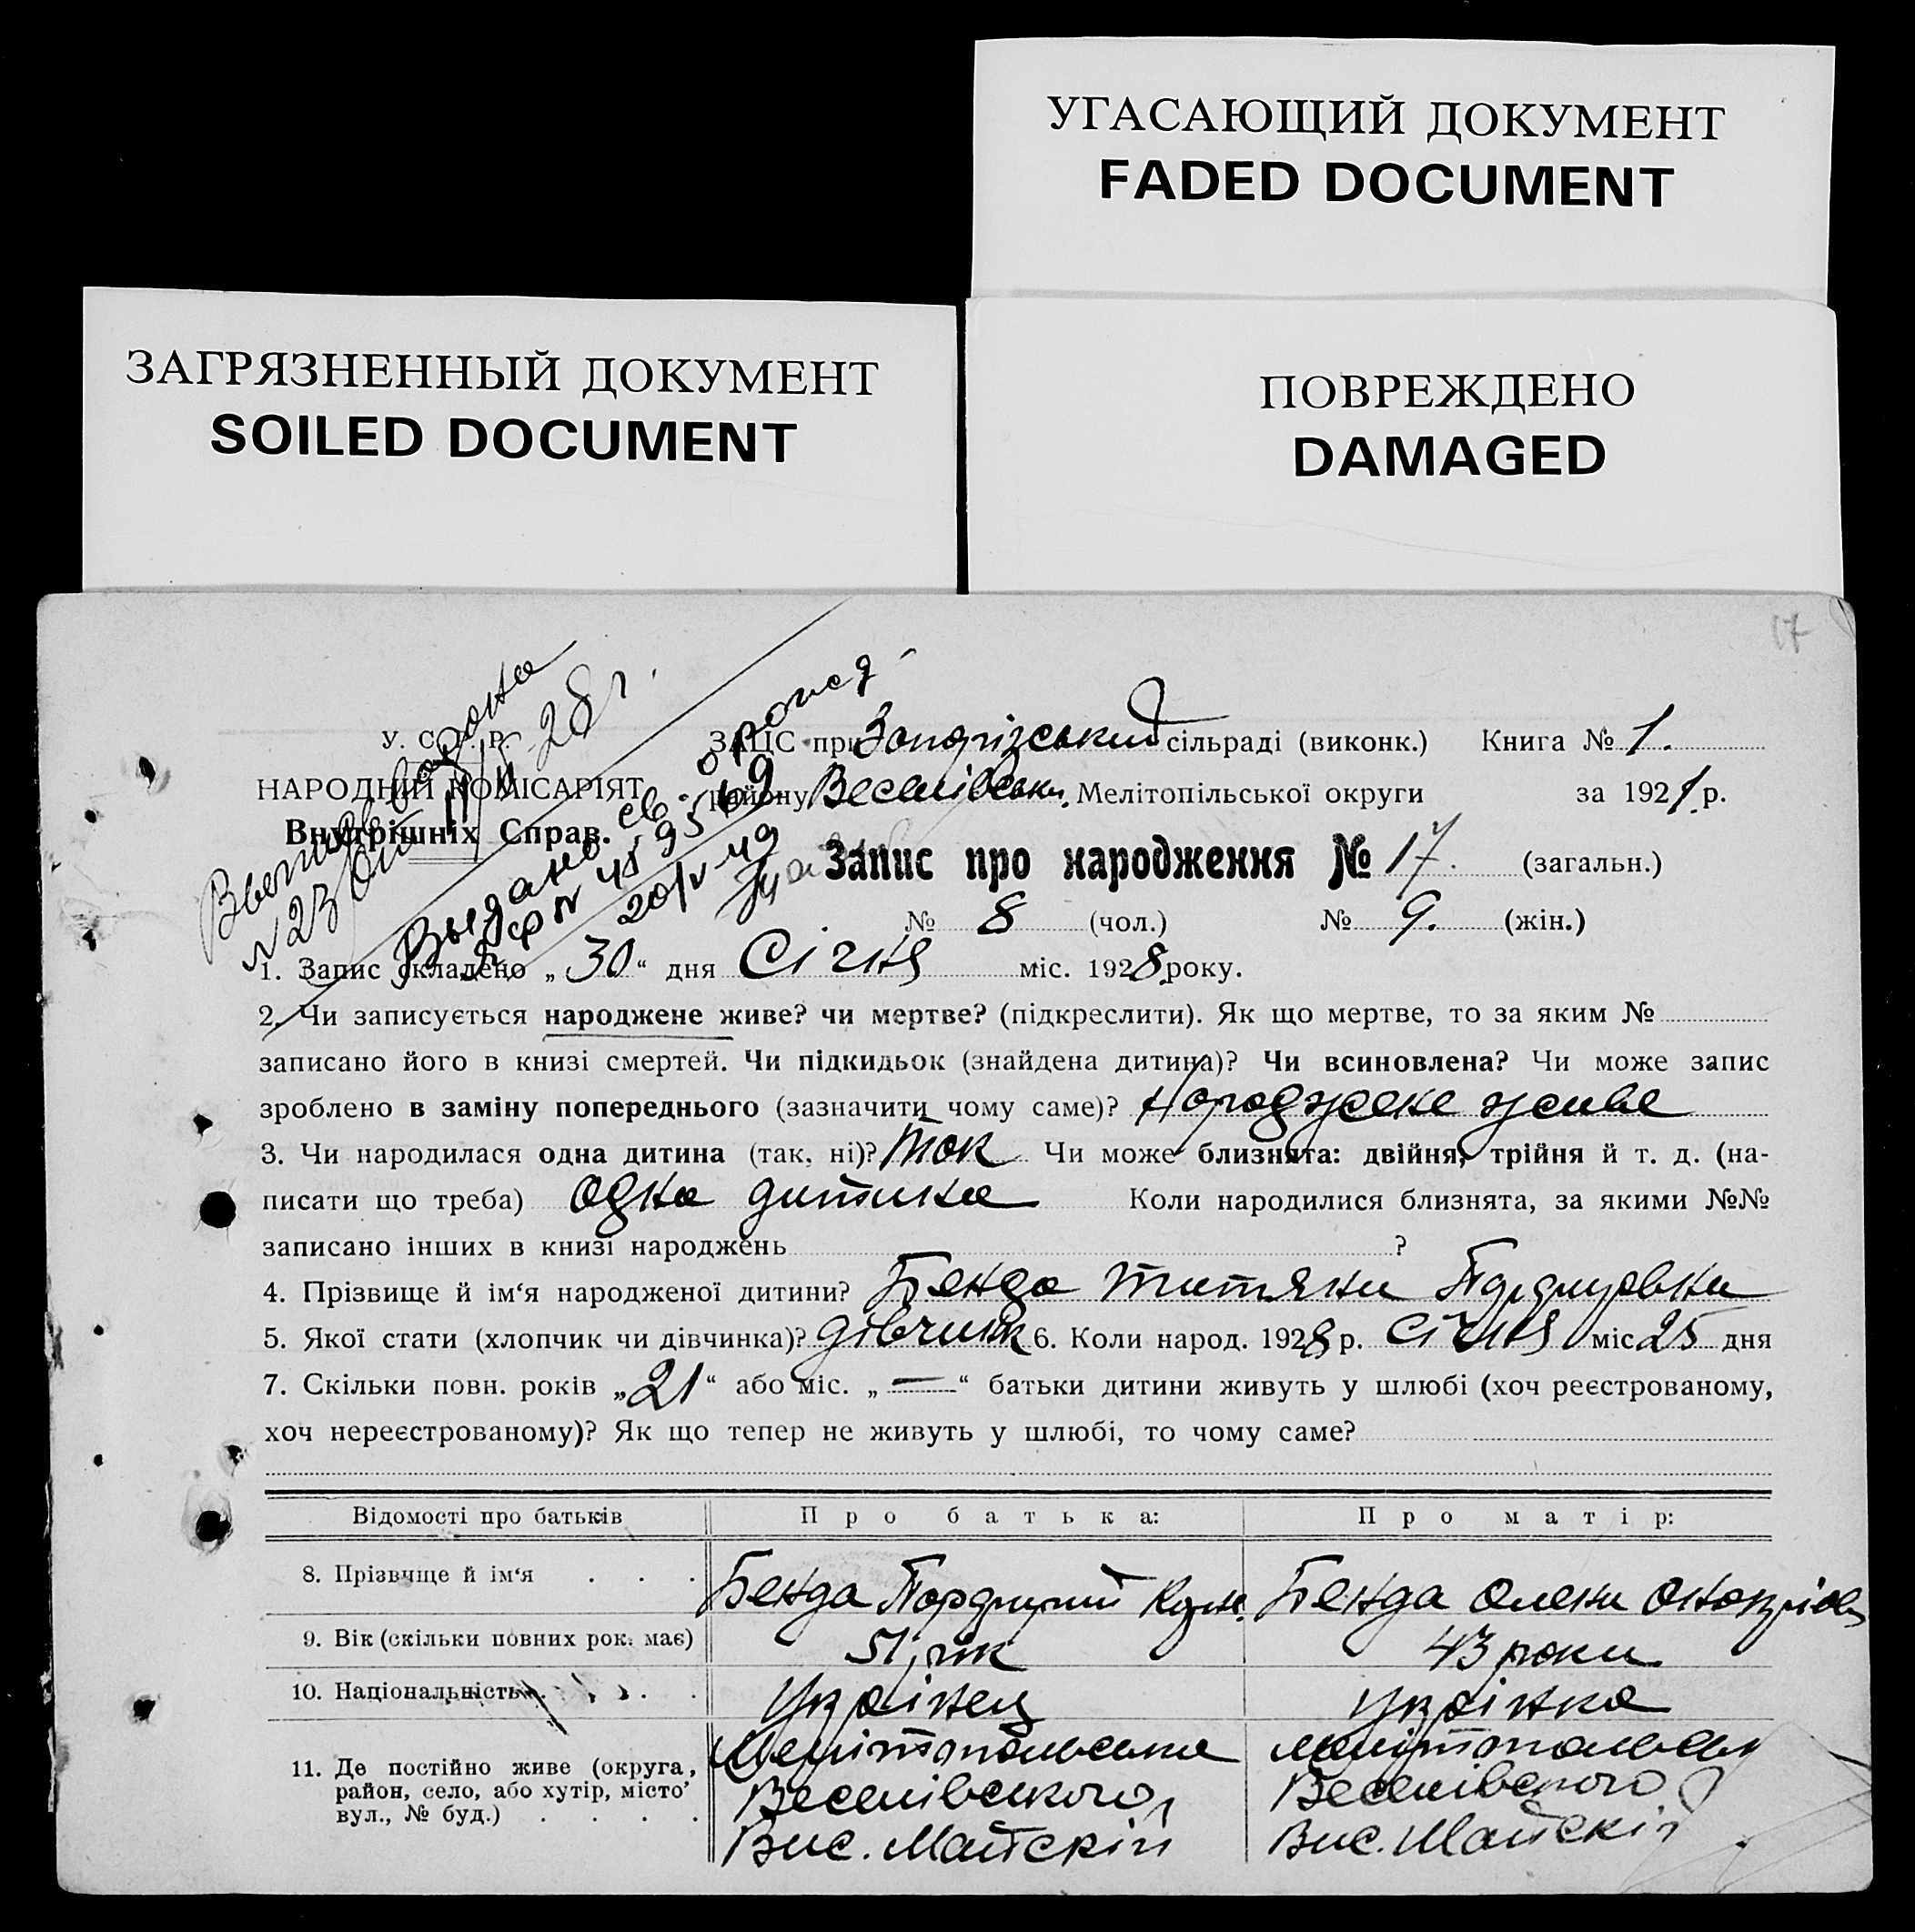 УГАСАЮЩИЙ ДОКУМЕНТ
FADED DOCUMENT
ЗАГРЯЗНЕННЫЙ ДОКУМЕНТ
SOILED DOCUMENT
ПОВРЕЖДЕНО
DAMAGED
17
У. С. Р. Р.
НАРОДНИЙ КОМІСАРІЯТ
Внутрішніх Справ.
28 г.
Выдано
20/IV 49
ЗАЦС при сільраді (виконк.) Книга № 1.
району Веселівськ. Мелітопільської округи за 192 р.
Запис про народження № 17. (загальн.)
№ 8 (чол.) № 9. (жін.)
1. Запис складено „30“ дня Січня міс. 1928 року.
2. Чи записується народжене живе? чи мертве? (підкреслити). Як що мертве, то за яким №
записано його в книзі смертей. Чи підкидьок (знайдена дитина)? Чи всиновлена? Чи може запис
зроблено в заміну попереднього (зазначити чому саме)? Народжене живе
3. Чи народилася одна дитина (так, ні)? Так Чи може близнята: двійня, трійня й т. д. (на-
писати що треба) Одна дитина Коли народилися близнята, за якими №№
записано інших в книзі народжень ?
4. Прізвище й ім‘я народженої дитини? Бенда
5. Якої стати (хлопчик чи дівчинка)? дівчинк 6. Коли народ. 1928 р. Січня міс 25 дня
7. Скільки повн. років „21“ або міс. „—“ батьки дитини живуть у шлюбі (хоч реєстрованому,
хоч нереєстрованому)? Як що тепер не живуть у шлюбі, то чому саме?
Відомості про батьків Про батька: Про матір:
8. Прізвище й ім‘я . . . Бенда Бенда Олена
9. Вік (скільки повних рок. має) 51 рік 43 роки
10. Національність . . . Українец Українка
11. Де постійно живе (округа,
район, село, або хутір, місто
вул., № буд.) . . . .
Мелітопольська
Веселівского
Вис. Майскій
Веселівского
Вис. Майскій